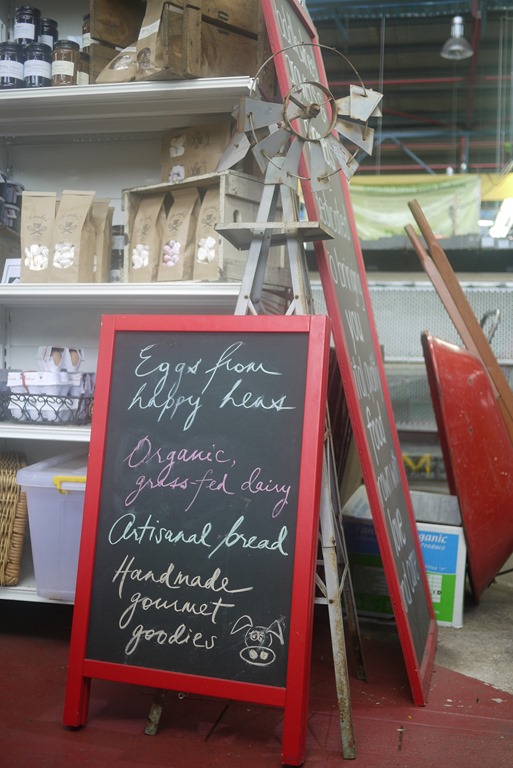 Eggs from
happy hens
Organic,
grass-fed dairy
Artisanal bread
Handmade
gourmet
goodies
to bringing
you
food
love
organic